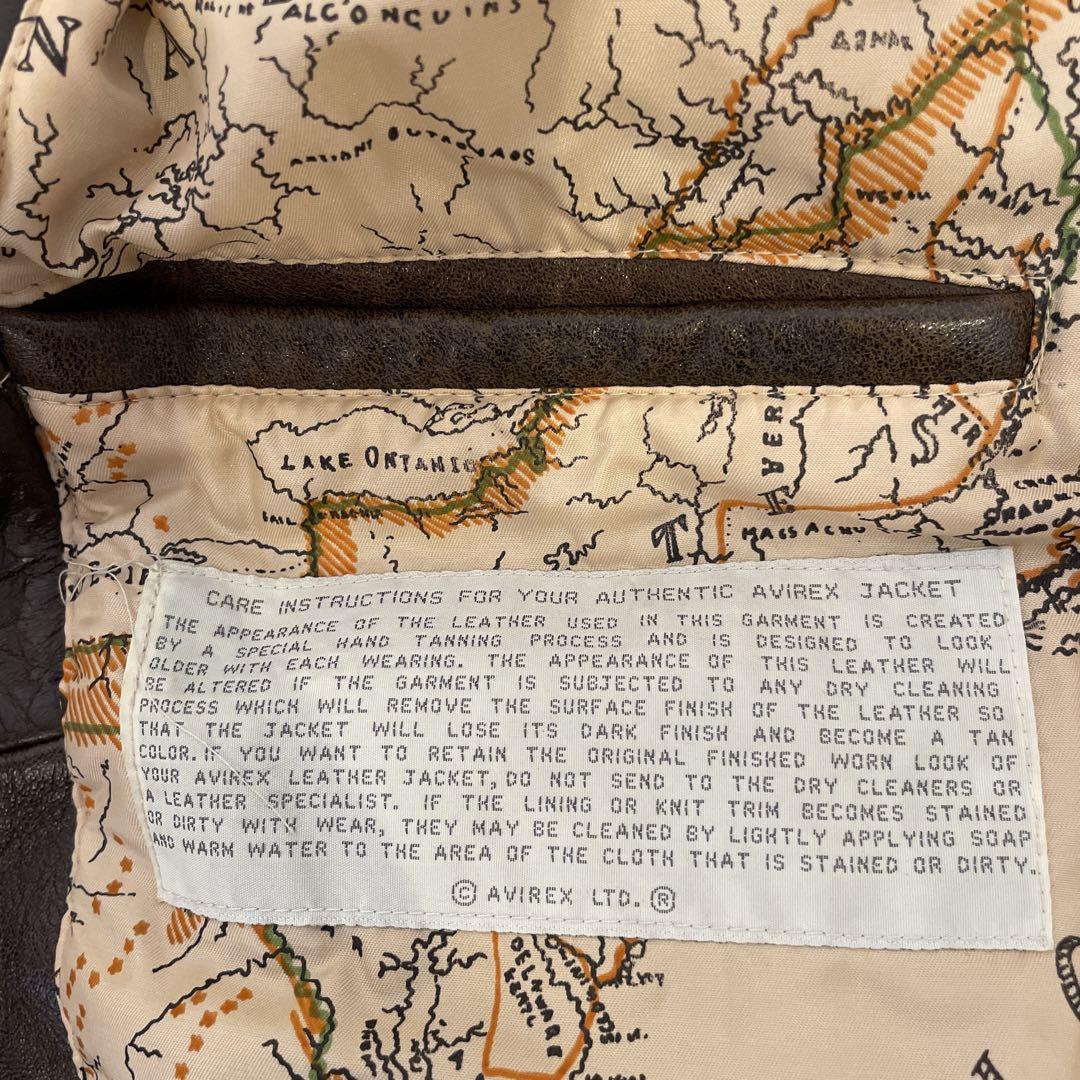 N A
ALGONQUINS
ANCIENT OUTAOAOS
LAKE ONTARIO
VERM
HIR
T
S
MASSACHU
CARE INSTRUCTIONS FOR YOUR AUTHENTIC AVIREX JACKET
THE APPEARANCE OF THE LEATHER USED IN THIS GARMENT IS CREATED
BY A SPECIAL HAND TANNING PROCESS AND IS DESIGNED TO LOOK
OLDER WITH EACH WEARING. THE APPEARANCE OF THIS LEATHER WILL
BE ALTERED IF THE GARMENT IS SUBJECTED TO ANY DRY CLEANING
PROCESS WHICH WILL REMOVE THE SURFACE FINISH OF THE LEATHER SO
THAT THE JACKET WILL LOSE ITS DARK FINISH AND BECOME A TAN
COLOR. IF YOU WANT TO RETAIN THE ORIGINAL FINISHED WORN LOOK OF
YOUR AVIREX LEATHER JACKET, DO NOT SEND TO THE DRY CLEANERS OR
A LEATHER SPECIALIST. IF THE LINING OR KNIT TRIM BECOMES STAINED
OR DIRTY WITH WEAR, THEY MAY BE CLEANED BY LIGHTLY APPLYING SOAP
AND WARM WATER TO THE AREA OF THE CLOTH THAT IS STAINED OR DIRTY.
© AVIREX LTD. ®
DELAWARE
KENT